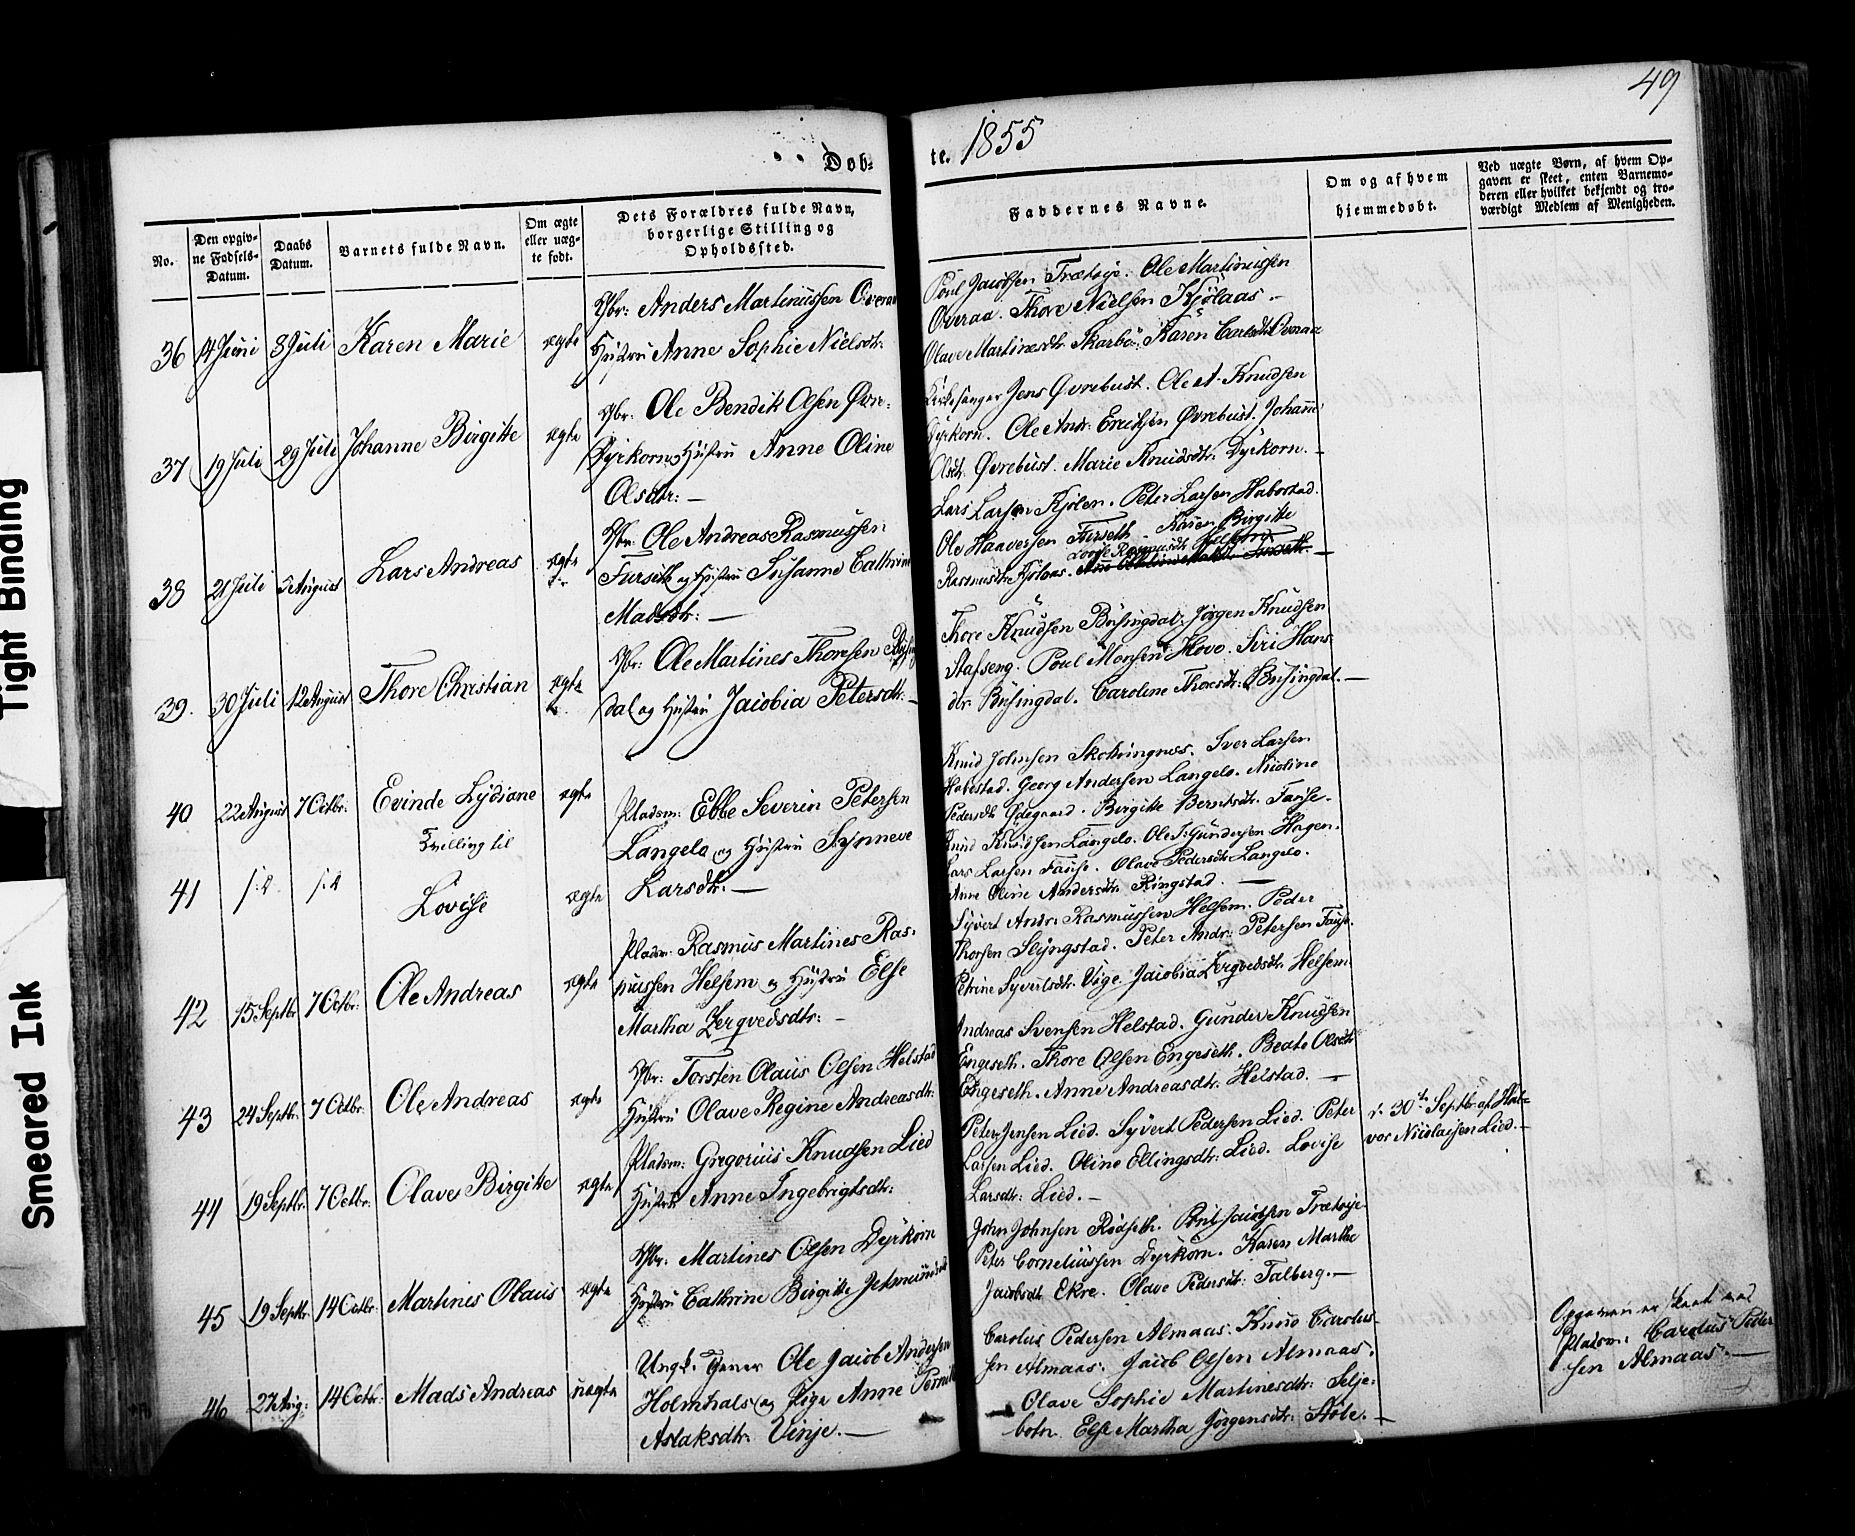 49
Døb-
te. 1855
No.
Den opgiv-
ne Fødsels-
Datum.
Daabs
Datum.
Barnets fulde Navn.
Om ægte
eller uæg-
te født.
Dets Forældres fulde Navn,
borgerlige Stilling og
Opholdssted.
Faddernes Navne.
Om og af hvem
hjemmedøbt.
Ved uægte Børn, af hvem Op-
gaven er skeet, enten Barnemo-
deren eller hvilket bekjendt og tro-
værdigt Medlem af Menigheden.
36 14 Juni 8 Juli Karen Marie ægte
Gbr: Anders Martinussen Overaa
Hustru Anne Sophie Nielsdtr.
Poul Jacobsen Trætøje. Ole Martinussen
Overaa. Thore Nielsen Kjølaas.
Olave Martinesdtr. Skarbø. Karen Carlsdtr Overaa
37 19 Juli 29 Juli Johanne Birgitte ægte
Gbr: Ole Bendik Olsen Øvre-
Dyrkorn og Hustru Anne Oline
Olsdtr: —
Kirkesanger Jens Øvrebust. Ole A. Knudsen
Dyrkorn. Ole Andr: Ericksen Øvrebust. Johanne
Olsdtr. Øvrebust. Marie Knudsdtr. Dyrkorn. —
38 21 Juli 5 August Lars Andreas ægte
Gbr: Ole Andreas Rasmussen
Furseth og Hustru Susanne Cathrine
Madsdtr: —
Lars Larsen Kjølen. Peter Larsen Habostad.
Ole Haaversen Furseth Karen Birgitte
Rasmusdtr Kjølaas.
39. 30 Juli 12 August Thore Christian ægte
Gbr: Ole Martines Thoresen Busing
dal og Hustru Jacobia Petersdtr. —
Thore Knudsen Busingdal. Jørgen Knudsen
Stafseng. Poul Monsen Hovo. Siri Hans
dtr. Busingdal. Caroline Thoresdtr: Busingdal. —
40 22 August 7 Octbr: Evinde Lydiane ægte
Tvelling til
Pladsm: Ebbe Severin Petersen
Langelo og Hustru Synneve
Larsdtr. —
Knud Johnsen Skotningnes. Iver Larsen
Habostad. Georg Andersen Langelo. Nicoline
Pedersdtr Ødegaard. Birgitte Berntsdtr. Fause.
41 s: d. s: d Lovise ægte
Knud Knudsen Langelo. Ole I. Gundersen Hagen.
Lars Larsen Fause. Olave Pedersdtr Langelo.
Anne Oline Andersdtr Ringstad. —
42 15 Septbr 7 Octbr: Ole Andreas ægte
Pladsm: Rasmus Martines Ras-
mussen Helsem og Hustru Else
Martha Zergvedsdtr: —
Syvert Andr: Rasmussen Helsem. Peder
Thorsen Slyngstad. Peter Andr: Petersen Fause.
Petrine Syvertsdtr. Vige. Jacobia Zergvedsdtr. Helsem.
43 24 Septbr. 7 Octbr. Ole Andreas ægte
Gbr: Torsten Olaus Olsen Helstad
Hustru Olave Regine Andreasdtr:
Andreas Svensen Helstad. Gunder Knudsen
Engeseth. Thore Olsen Engeseth. Beate Olsdtr
Engeseth. Anne Andreasdtr. Helstad. —
44 19 Septbr. 7 Octbr. Olave Birgitte ægte
Pladsm: Gregorius Knudsen Lied
Hustru Anne Ingebrigtsdtr:
Peter Jensen Lied. Syvert Pedersen Lied. Peter
Larsen Lied. Oline Ellingsdtr. Lied. Lovise
Larsdtr: Lied. —
d. 30te Septbr. af Hal-
vor Nicolaisen Lied. —
45 19 Septbr. 14 Octbr. Martinus Olaus ægte
Gbr: Martines Olsen Dyrkorn
Hustru Cathrine Birgitte Jetmundsdtr
John Johnsen Rødseth. Poul Jacobsen Trætøje
Peter Corneliussen Dyrkorn. Karen Marthe
Jacobsdtr Ekre. Olave Pedersdtr: Talberg. —
46 27 Aug: 14 Octbr: Mads Andreas uægte
Ungk. Tjener Ole Jacob Andersen
Holmhals og Pige Anne Pernille
Aslaksdtr. Vinje. —
Carolus Pedersen Almaas. Knud Carolus-
sen Almaas. Jacob Olsen Almaas.
Olave Sophie Martinesdtr: Selje-
botn. Else Martha Jørgensdtr: Støle. —
Opgaven er skeet ved
Pladsm: Carolus Peder
sen Almaas. —
Tight Binding
Smeared Ink